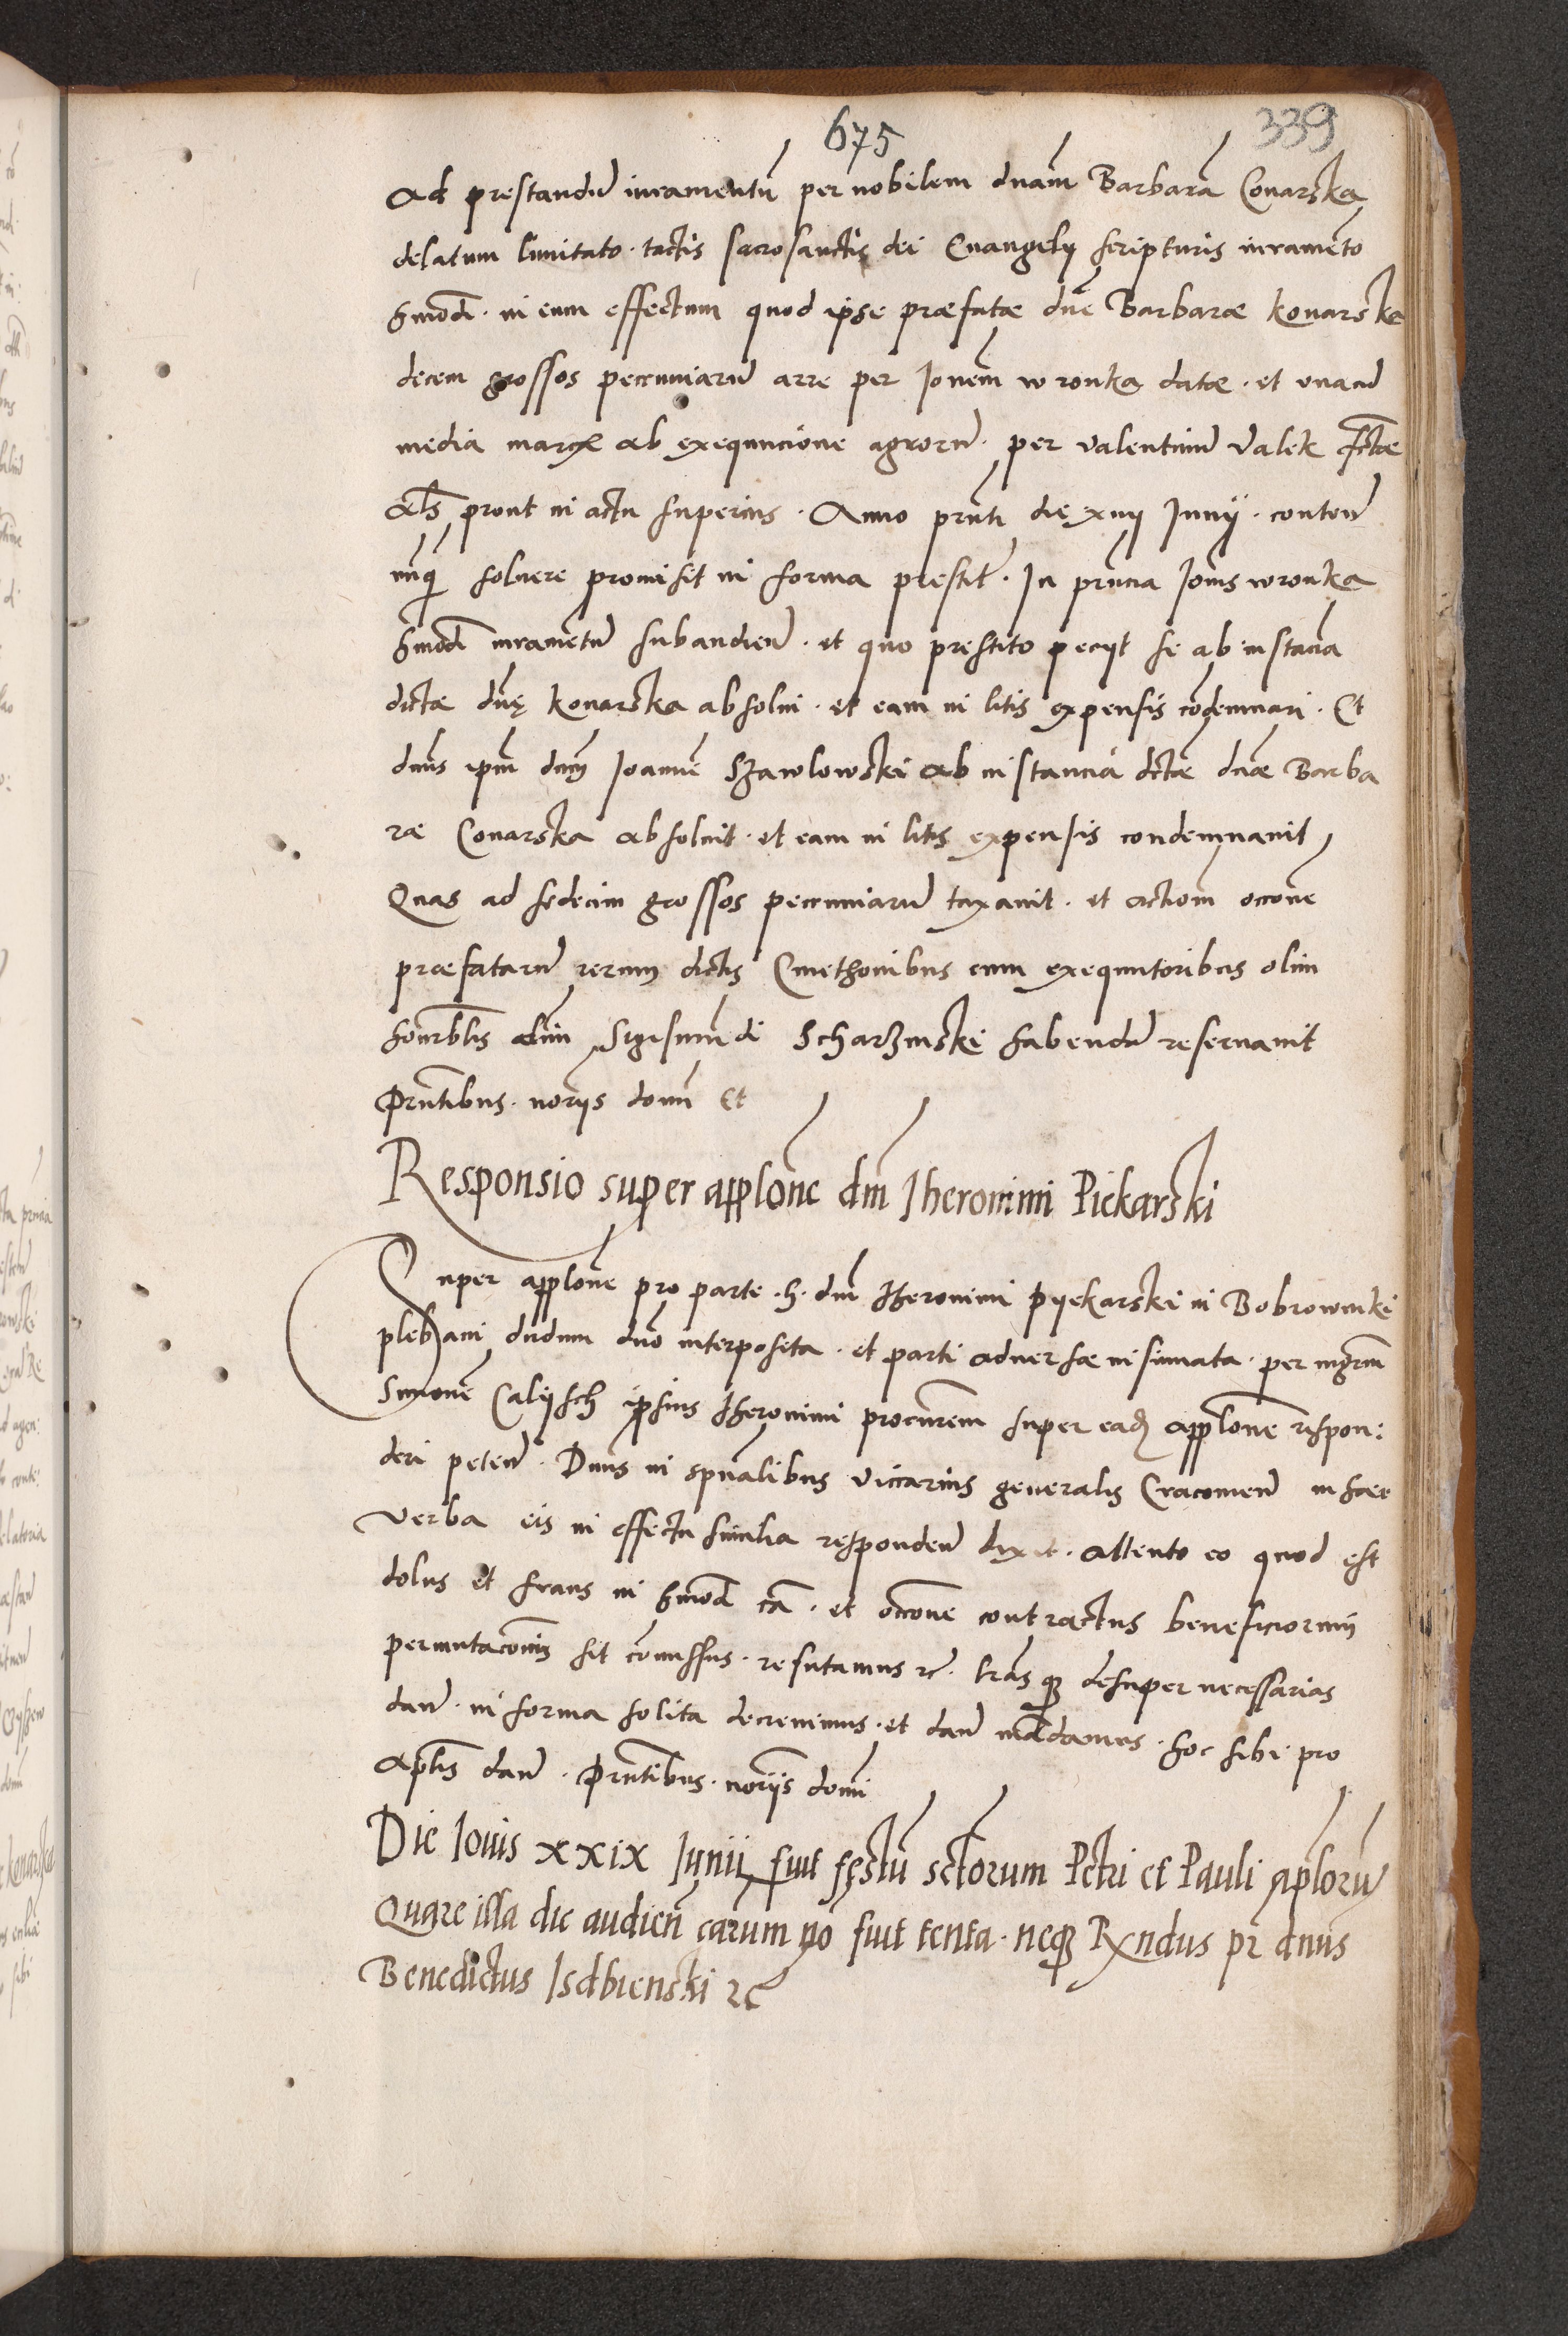 675
339
ad prestandū iuramentū per nobilem dnām Barbarā Conarska
delatum limitato · tactis sacrosanctis dei Euangelÿ scripturis iuramēto
hmōdi · in eum effectum quod ipse præfatæ dnē Barbaræ konarska
decem grossos pecuniarū arre per Ioñem wronka datæ · et una cū
media marca ab exequucione agrorū · per valentinū valek fctæ
als prout in actu superius · Anno prnti die xiiij Iunij · conten̄
soluere promisit in forma prestit · In prncia Ioñis wronka
hmōdi iuramētū subaudien̄ · et quo prestito pecyt se ab instācia
dictæ dnę konarska absolui · et eam in litis expensis cōdemnari · Et
dnus ipm dnm Ioannē Szawlowski ab instancia dctæ dnæ Barba
ræ Conarska absoluit · et eam in litis expensis condemnauit
Quas ad sedecim grossos pecuniarū taxauit · et actiōm occōne
præfatarū rerum dictis Cmethonibus cum exequutoribus olim
honrblis olim Sigismūndi Scharzinski habendā reseruauit
Prntibus · noriis domi Et
Responsio super applōne dni Iheronimi Piekarski
Super applōne pro parte · h · dni Hieronimi pyekarski in Bobrowniki
plebani dudum dno interposita · et parti aduersæ insinuata · per mgrm
Simonē Calijsch ipsius Hieronimi procurēm super eadē applōne respon:
deri peten̄ · Dnus in spualibus viccarius generalis Cracouien̄ in hæc
verba eis in effectu similia responden̄ dixit · Attento eo quod est
dolus et fraus in hmōdi cā · et occōne contractus beneficiorum
permutacōnis sit cōmissus · refutamus rc · lrās qz desuper necessarias
dan̄ · in forma solita decreuimus · et dan̄ mādamus · hoc sibi pro
aplis dan̄ · Prntibus · noriis domi
Die Iouis xxix Iunii fuit festū sctorum Petri et Pauli aplorū
Quare illa die audien̄ carum nō fuit tenta · neqz Rxndus pr dnus
Benedictus Isdbienski rc